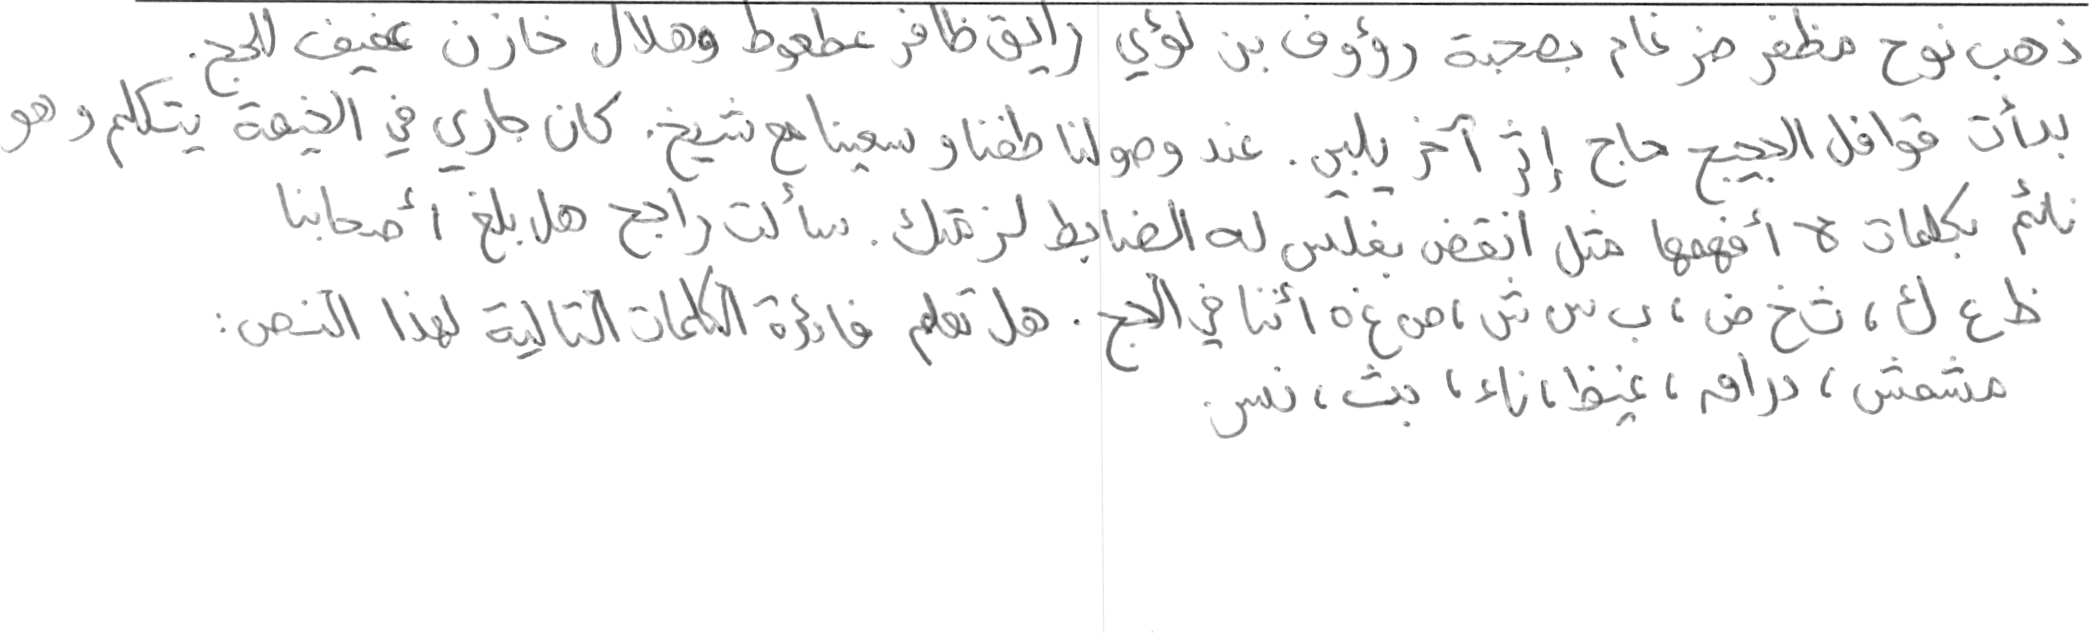 ذهب نوح مظفر ضرغام بصحبة رؤوف بن لؤي رايق ظافر عطعوط وهلال خازن عفيف للحج.
بدأت قوافل الحجيج حاج إثر آخر يلبي. عند وصولنا طفنا وسعينا مع شيخ. كان جاري في الخيمة يتكلم وهو
نائم بكلمات لا أفهمها مثل انقض بغلس له الضابط لزقتك. سألت راجح هل بلغ أصحابنا
ظ ع ك، ث خ ض، ب س ش، ص غ ه أننا في الحج. هل تعلم فائدة الكلمات التالية لهذا النص:
مشمش، دراق، غيظ، ناء، بث، نس.